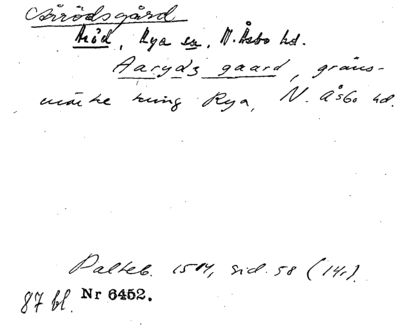 Årödsgård
Aröd, Rya sn, N. Åsbo hd.
Aaryds gaard, gräns-
märke kring Rya, N. Åsbo hd.
Palteb. 1514, sid. 58 (14r).
87 bl. Nr 6452.